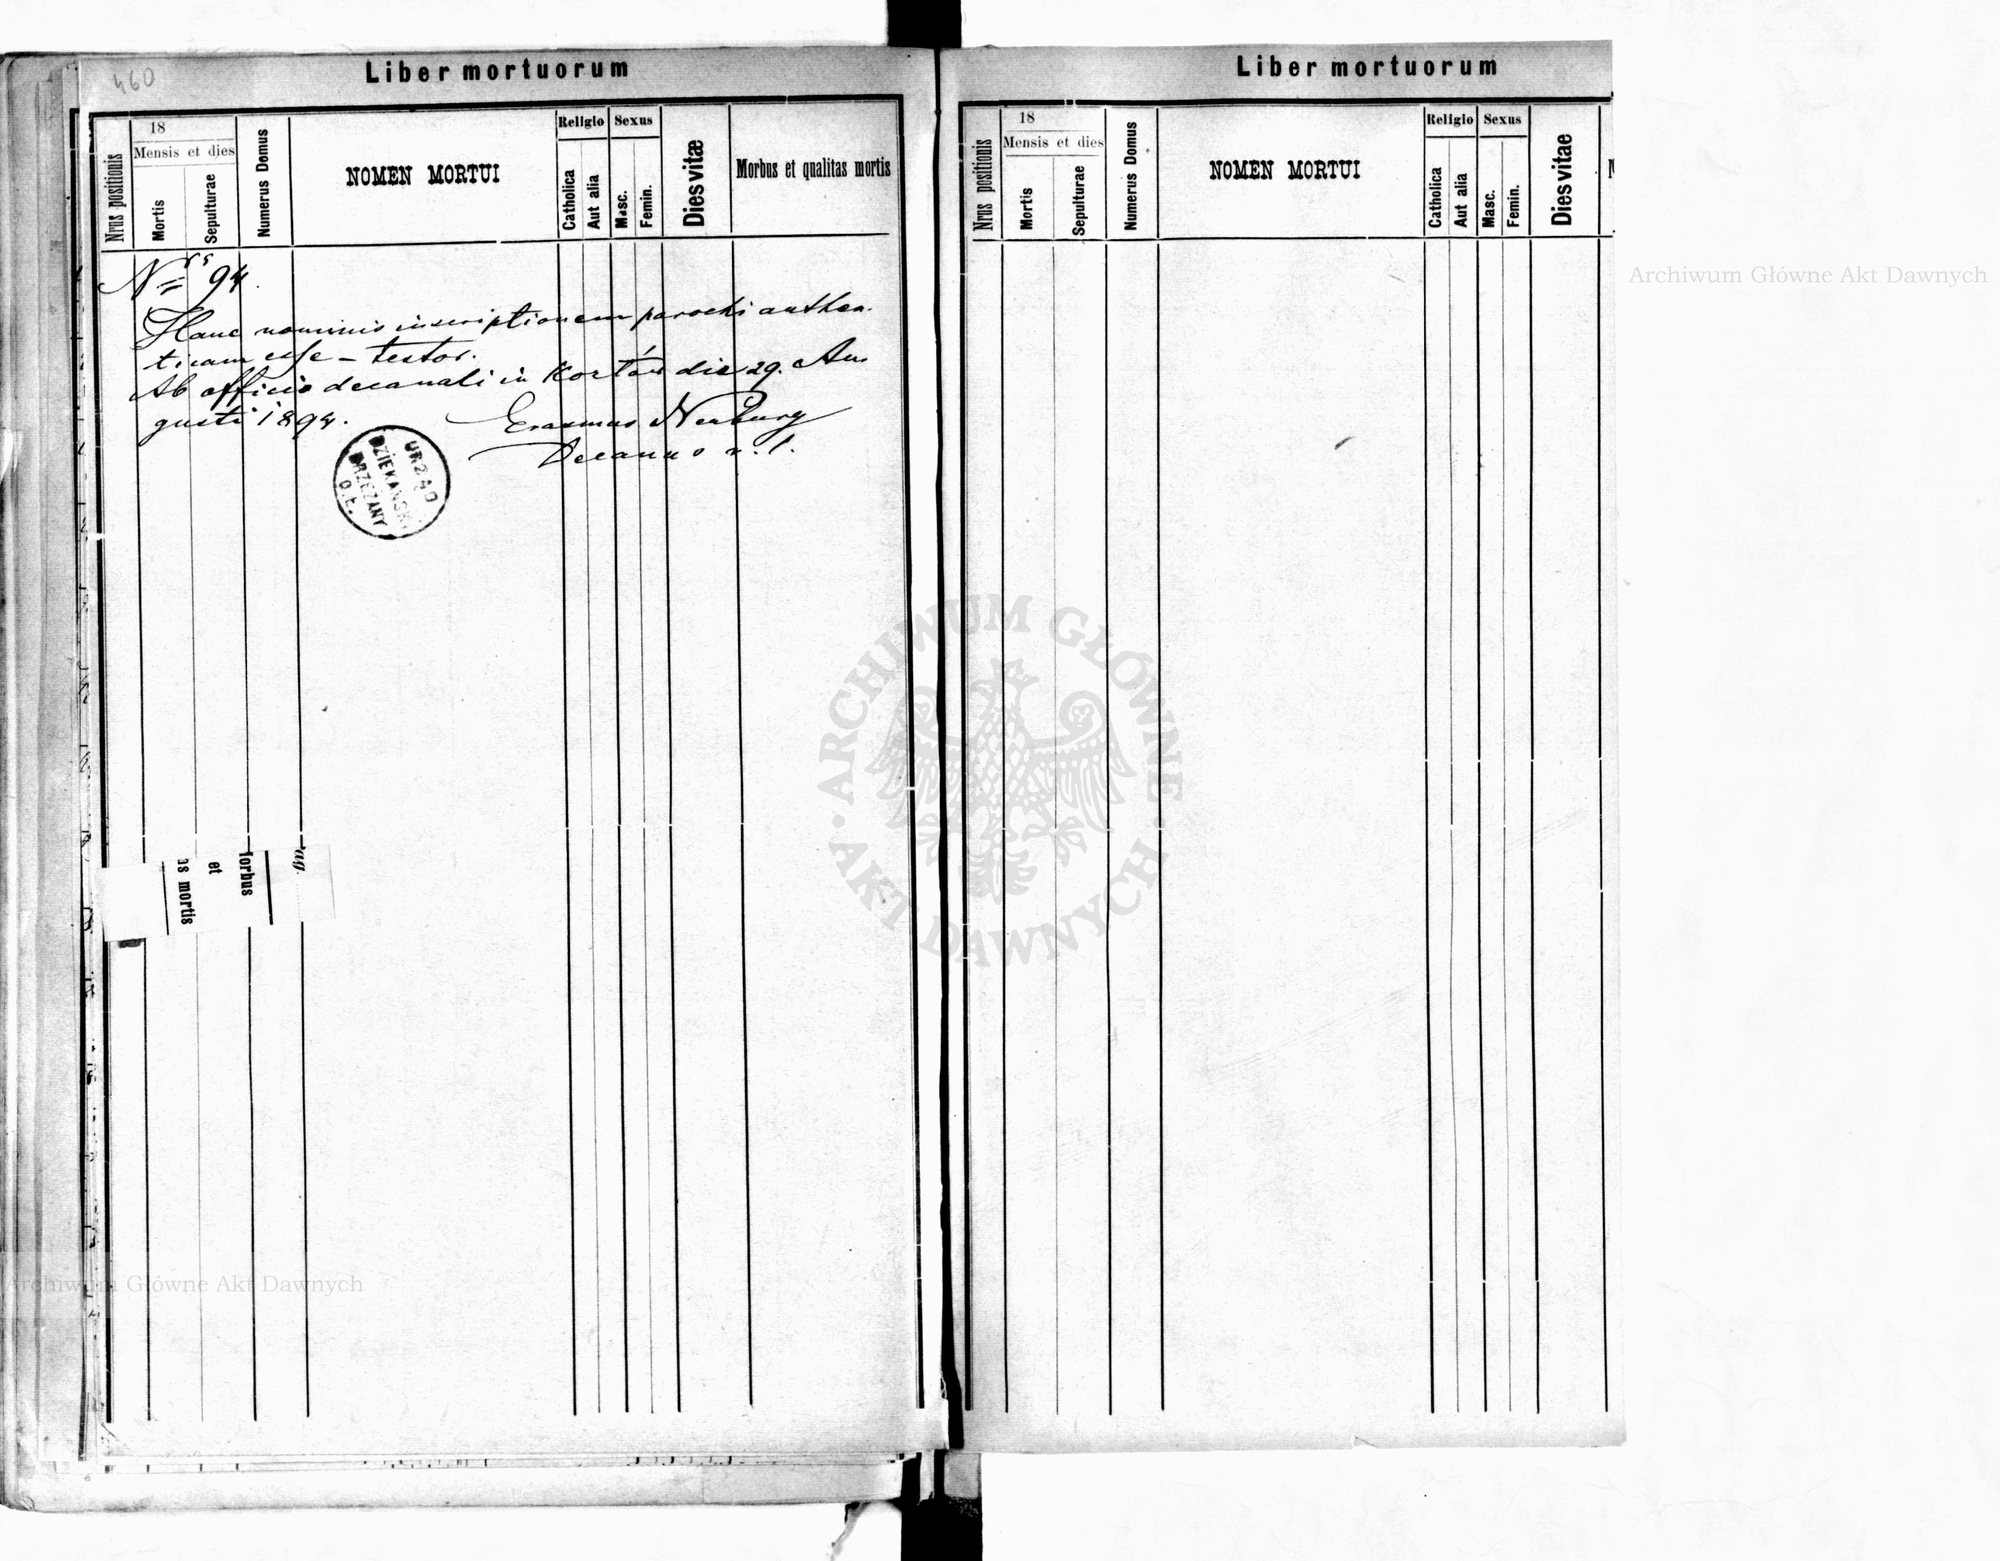 460
Liber mortuorum
Nrus positionis
18
Mensis et dies
Mortis
Sepulturae
Numerus Domus
NOMEN MORTUI
Religio
Catholica
Aut alia
Sexus
Masc.
Femin.
Dies vitæ
Morbus et qualitas mortis
Nrs 94.
Hanc nominis inscriptionem parochi authen-
ticam esse – testor.
Ab officio decanali in Kozłów die 29. Au
gusti 1894.
Erasmus Neuburg
Decanus r. l.
URZĄD
DZIEKAŃSKI
BRZEŻANY
O. Ł.
orbus
et
as mortis
ag.
Liber mortuorum
Nrus positionis
18
Mensis et dies
Mortis
Sepulturae
Numerus Domus
NOMEN MORTUI
Religio
Catholica
Aut alia
Sexus
Masc.
Femin.
Dies vitae
Archiwum Główne Akt Dawnych
ARCHIWUM GŁÓWNE
AKT DAWNYCH
Archiwum Główne Akt Dawnych